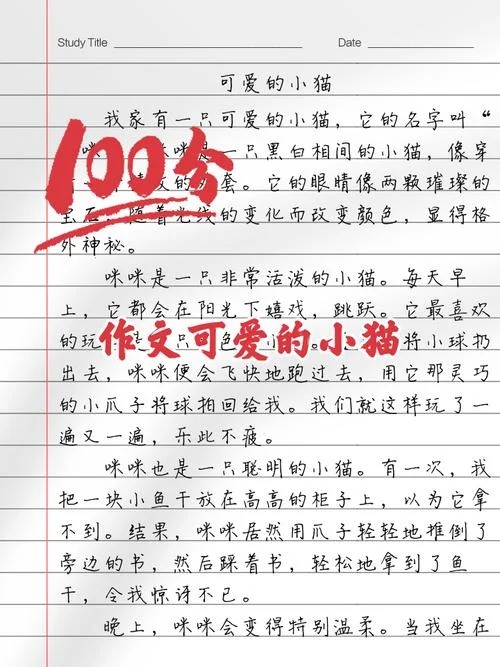 Study Title
Date
可爱的小猫
我家有一只可爱的小猫,它的名字叫“
100分
咪 是一只黑白相间的小猫,像穿
套。它的眼睛像两颗璀璨的
宝石,随着光线的变化而改变颜色,显得格
外神秘。
咪咪是一只非常活泼的小猫。每天早
上,它都会在阳光下嬉戏,跳跃。它最喜欢
的玩 只 色 小 将小球扔
作文可爱的小猫
出去,咪咪便会飞快地跑过去,用它那灵巧
的小爪子将球拍回给我。我们就这样玩了一
遍又一遍,乐此不疲。
咪咪也是一只聪明的小猫。有一次,我
把一块小鱼干放在高高的柜子上,以为它拿
不到。结果,咪咪居然用爪子轻轻地推倒了
旁边的书,然后踩着书,轻松地拿到了鱼
干,令我惊讶不已。
晚上,咪咪会变得特别温柔。当我坐在